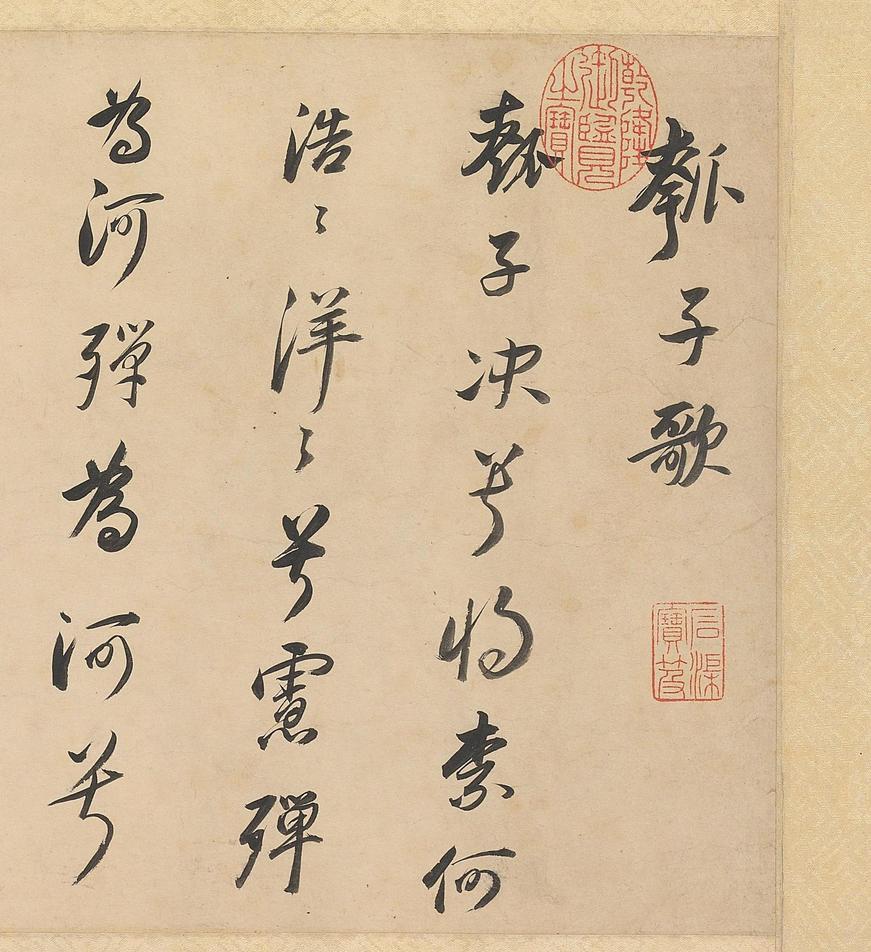 瓠子歌
瓠子决兮將柰何
浩〻洋〻兮慮殫
為河殫為河兮
乾隆御覽之寶
石渠寶笈